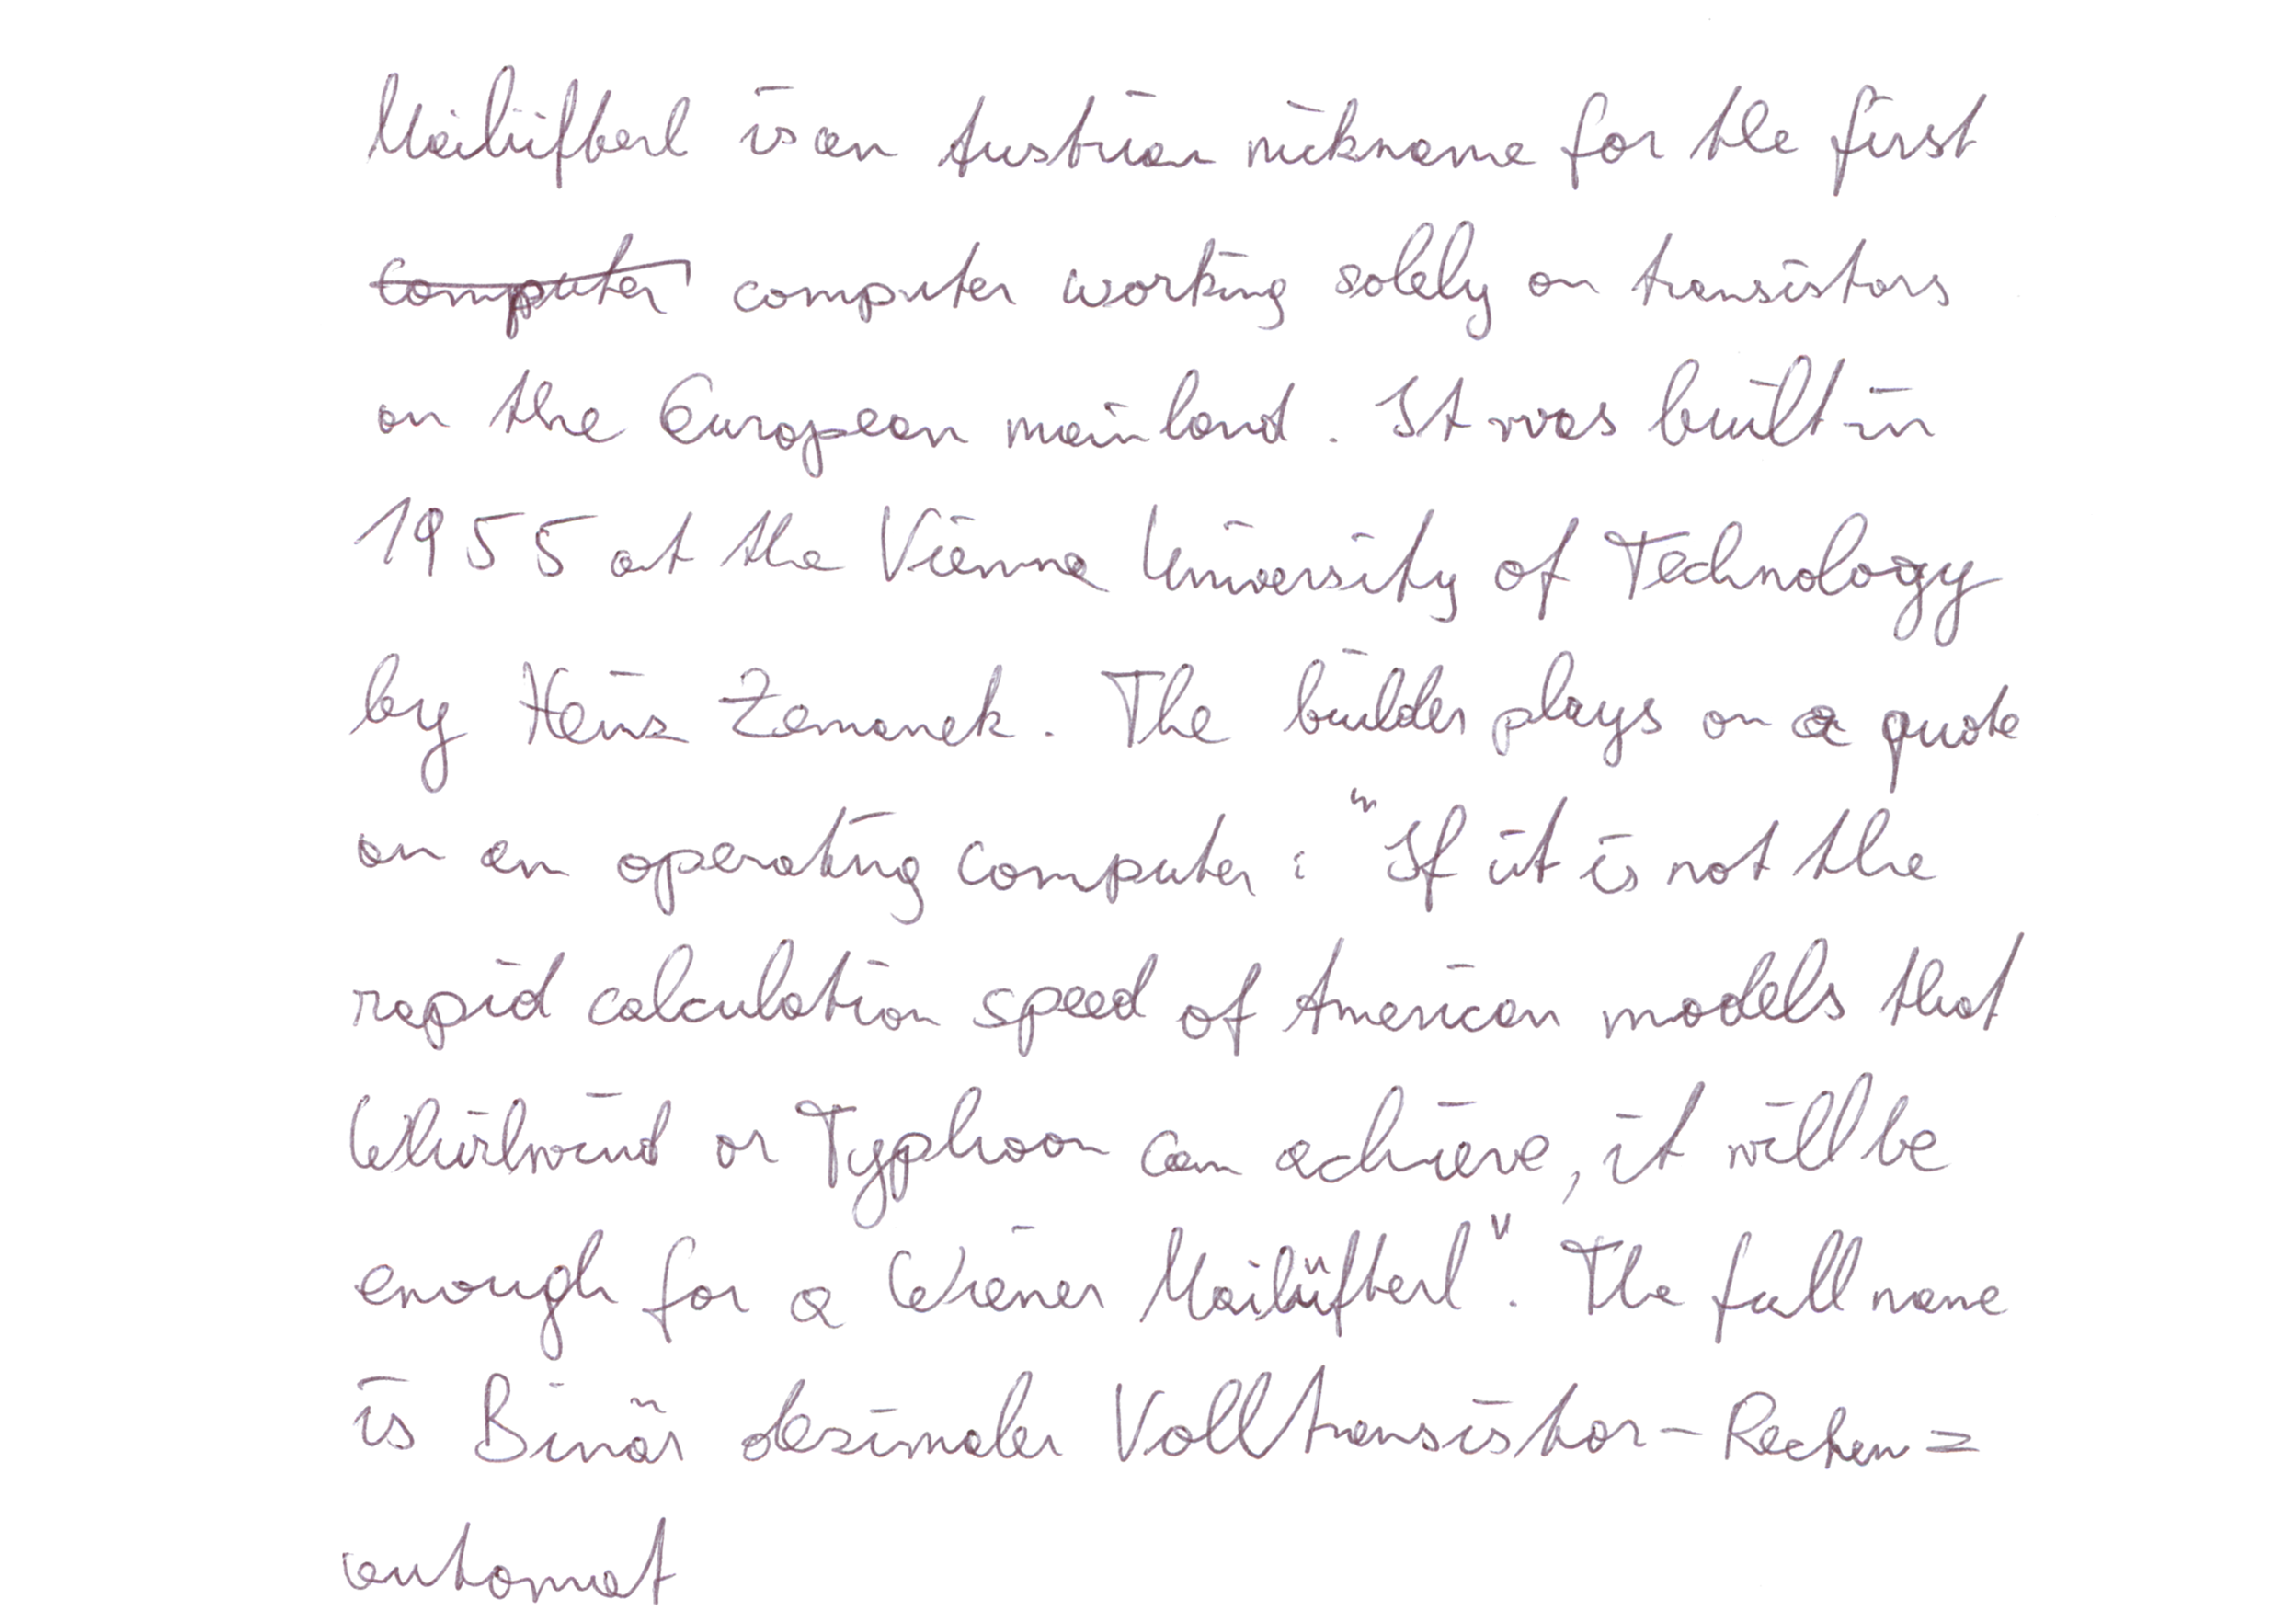 Mailüfterl is an Austrian nickname for the first
computer computer working solely on transistors
on the European mainland. It was built in
1955 at the Vienna University of Technology
by Heinz Zemanek. The builder plays on a quote
on an operating computer: "If it is not the
rapid calculation speed of American models that
Whirlwind or Typhoon can achieve, it will be
enough for a Wiener Mailüfterl". The full name
is Binär dezimaler Volltransistor-Rechen=
automat